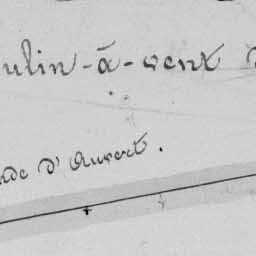 ulin-à-vent
de d'Auvert.